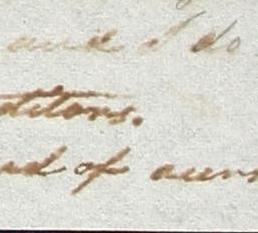 and I do
ditors.
ad of ours